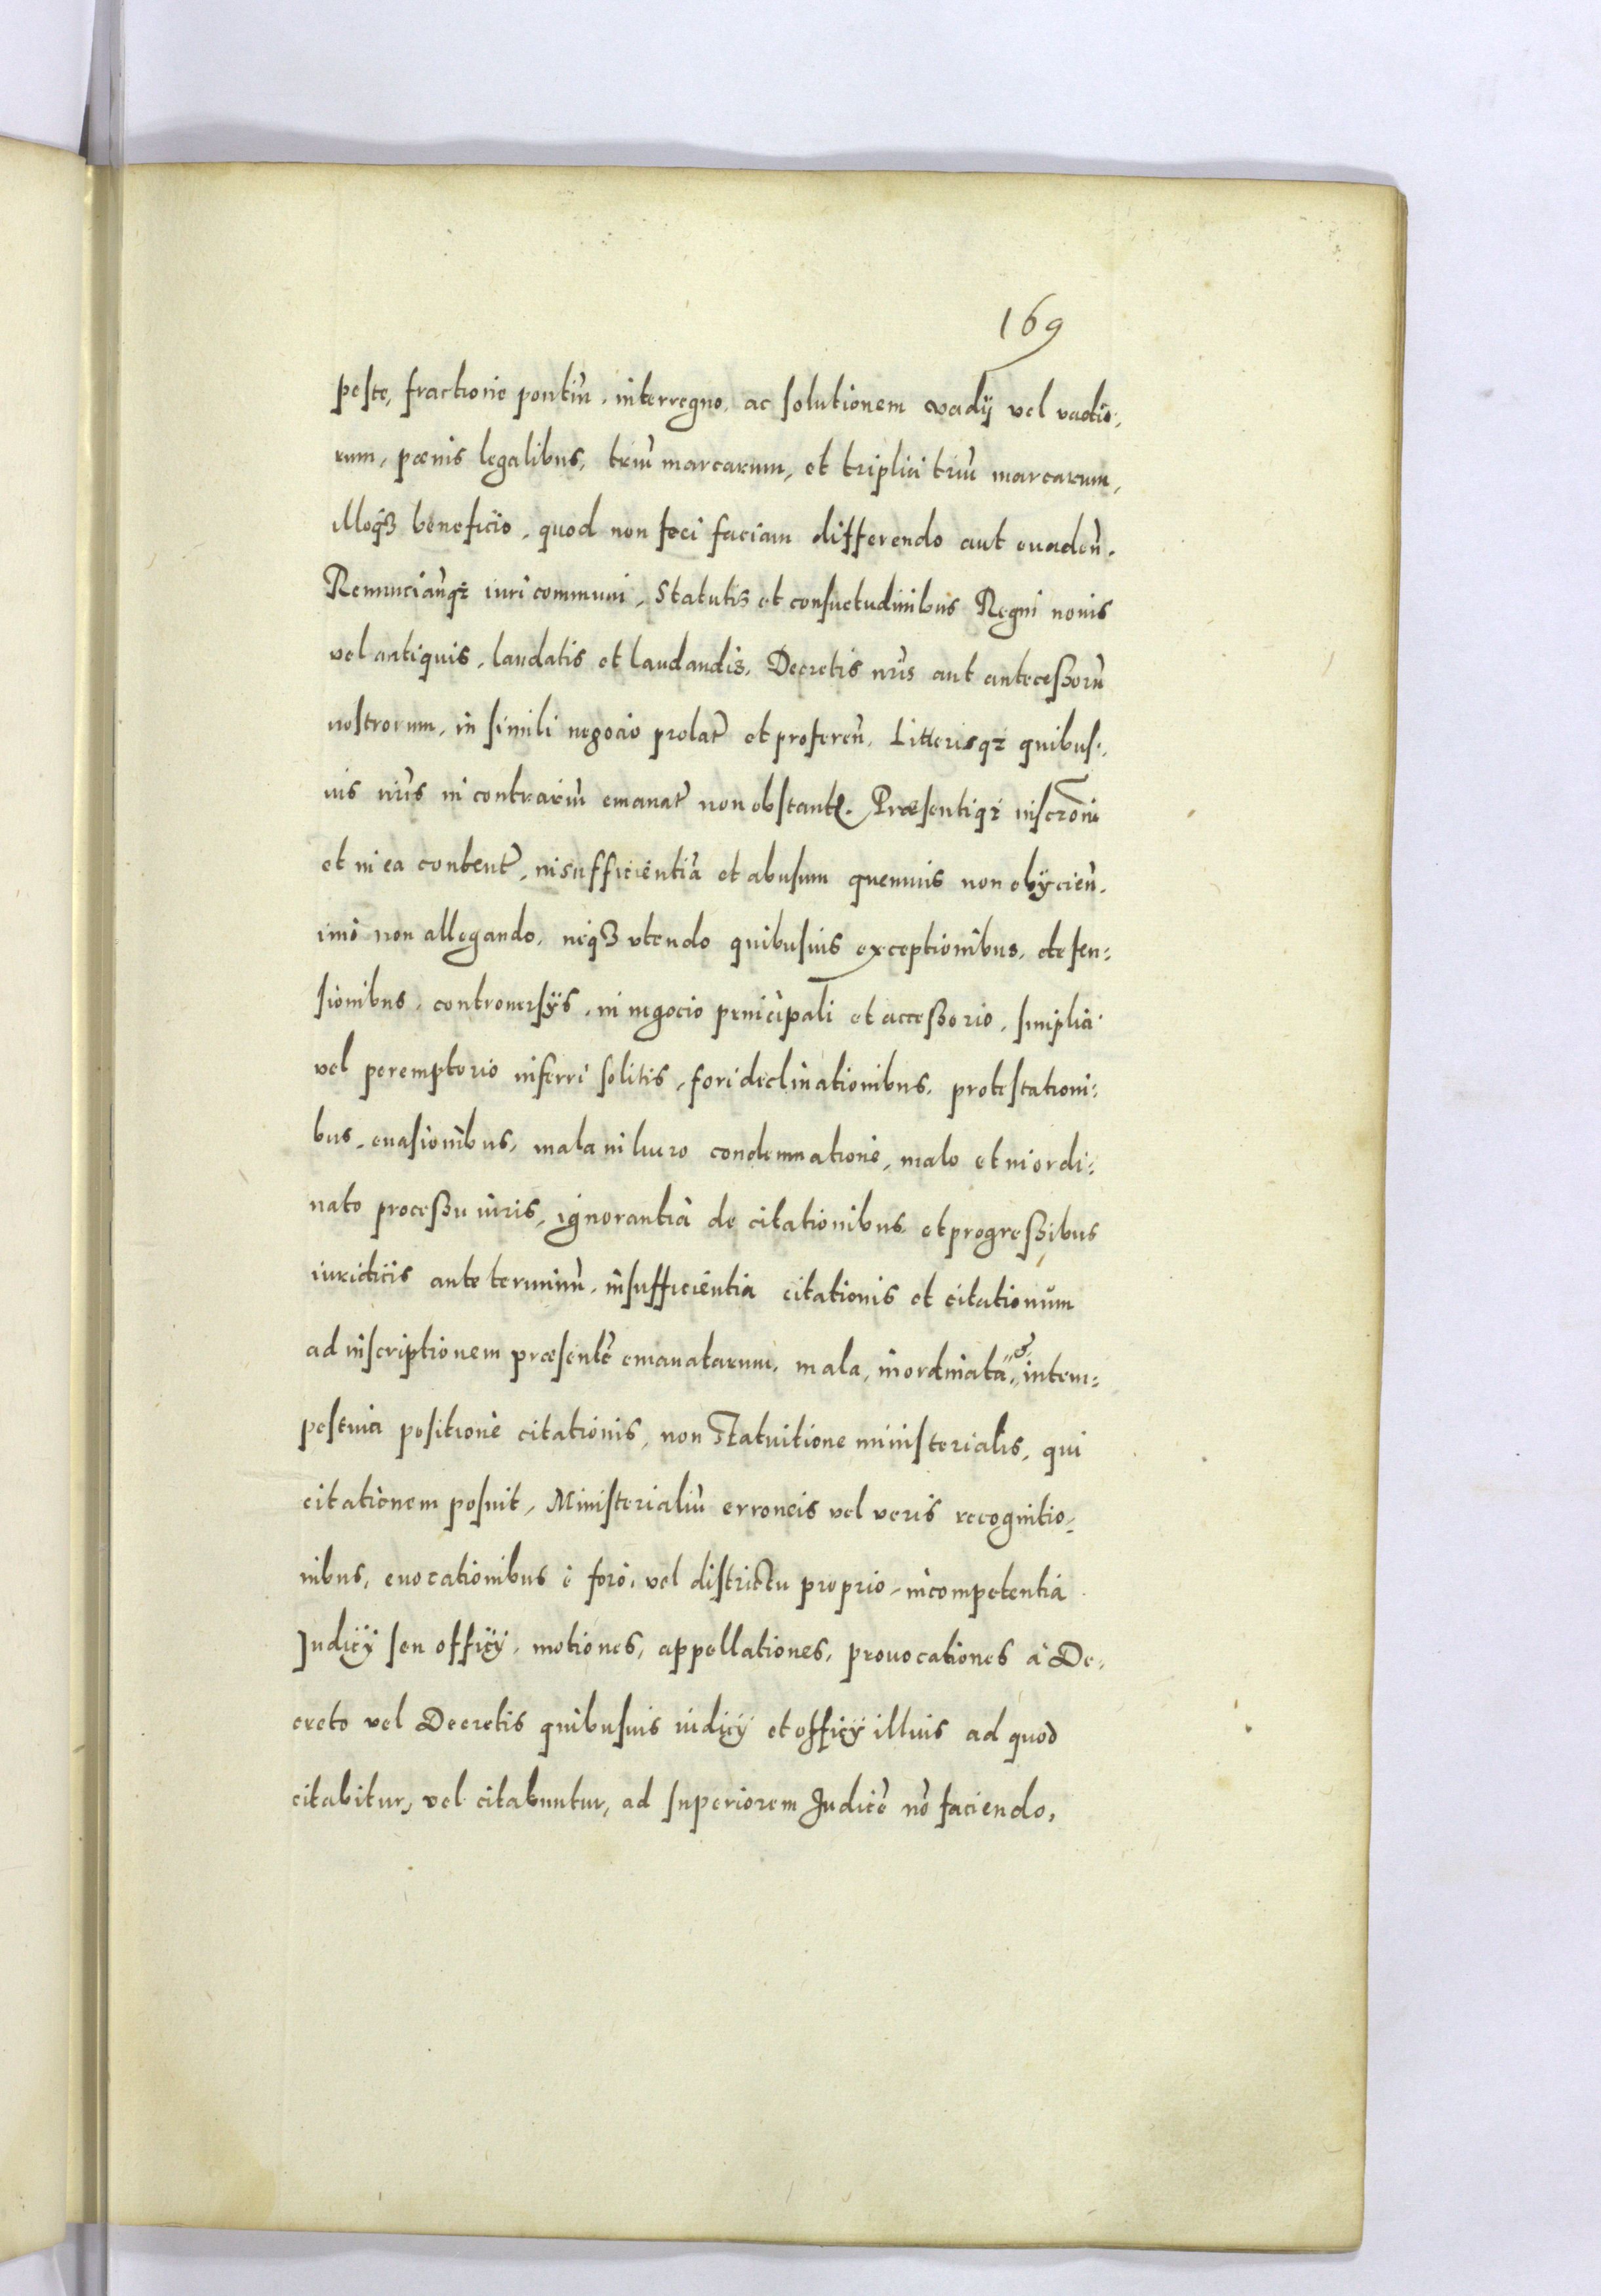 169
peste, fractione pontiũ, interregno, ac solutionem vadÿ vel vadio:
rum, pœnis legalibus, triũ marcarum, et triplici triũ marcarum,
illoqꝫ beneficio, quod non feci faciam differendo aut euadeñ.
Renunciañqꝫ iuri communi, Statutis et consuetudinibus Regni nouis
vel antiquis, laudatis et laudandis, Decretis nr̃is aut antecessorũ
nostrorum, in simili negocio prolat̃ et profereñ, Litterisqꝫ quibus:
uis nr̃is in contrariũ emanat̃ non obstant. Præsentiqꝫ inscr̃oni
et in ea content̃, insufficientiã et abusum quemuis non obÿcieñ.
imò non allegando, neqꝫ vtendo quibusuis exceptionibus, defen:
sionibus, controuersÿs, in negocio principali et accessorio, simplici
vel peremptorio inferri solitis, fori declinationibus, protestationi:
bus, euasionibus, mala in lucro condemnatione, malo et inordi:
nato processu iuris, ignorantia de citationibus et progressibus
iuridicis ante terminũ, insufficientia citationis et citationum
ad inscriptionem præsentẽ emanatarum, mala, inordinata, & intem:
pestiua positione citationis, non statuitione ministerialis, qui
citationem posuit, Ministerialiũ erroneis vel veris recognitio:
nibus, euocationibus è foro, vel districtu proprio, incompetentia
Judicÿ seu officÿ, motiones, appellationes, prouocationes à De:
creto vel Decretis quibusuis iudicÿ et officÿ illius ad quod
citabitur, vel citabuntur, ad superiorem Judicẽ nõ faciendo,